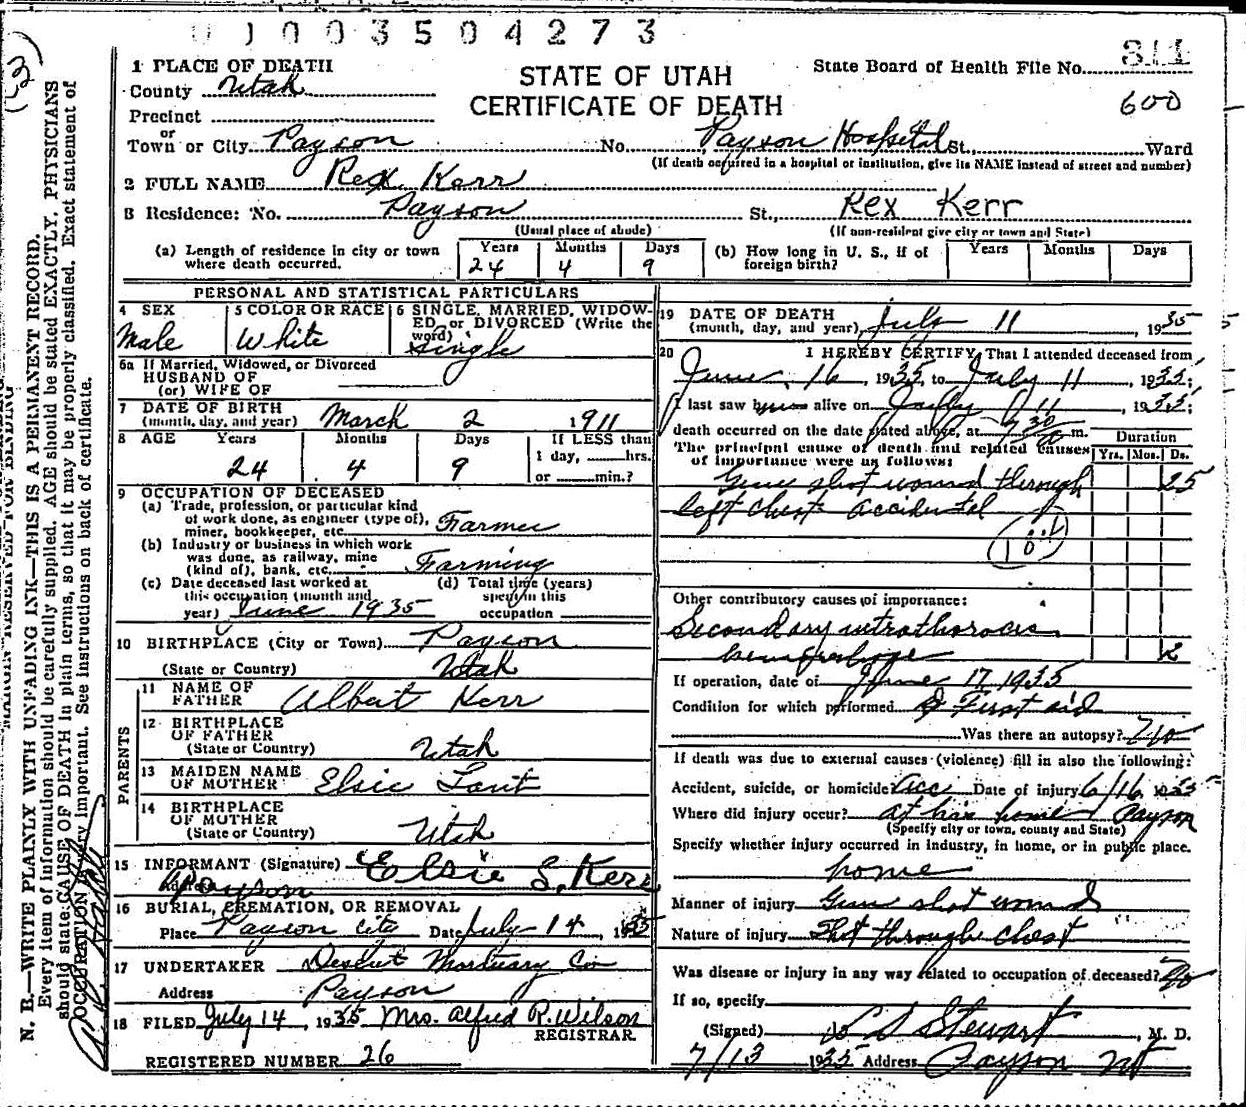 0 1 0 0 3 5 0 4 2 7 3
1 PLACE OF DEATH
County Utah
Precinct
or
Town or City Payson No. Payson Hospital St., Ward
STATE OF UTAH
CERTIFICATE OF DEATH
State Board of Health File No. 311
600
(If death occurred in a hospital or institution, give its NAME instead of street and number)
2 FULL NAME Rex Kerr
3 Residence: No. Payson St., Rex Kerr
(Usual place of abode) (If non-resident give city or town and State)
(a) Length of residence in city or town where death occurred. Years 24 Months 4 Days 9
(b) How long in U. S., if of foreign birth? Years Months Days
PERSONAL AND STATISTICAL PARTICULARS
4 SEX Male
5 COLOR OR RACE White
6 SINGLE, MARRIED, WIDOWED, or DIVORCED (Write the word) Single
6a If Married, Widowed, or Divorced
HUSBAND OF
(or) WIFE OF
7 DATE OF BIRTH
(month, day, and year) March 2 1911
8 AGE Years 24 Months 4 Days 9
If LESS than
1 day, hrs.
or min.?
9 OCCUPATION OF DECEASED
(a) Trade, profession, or particular kind
of work done, as engineer (type of),
miner, bookkeeper, etc. Farmer
(b) Industry or business in which work
was done, as railway, mine
(kind of), bank, etc. Farming
(c) Date deceased last worked at
this occupation (month and
year) June 1935
(d) Total time (years)
spent in this
occupation
10 BIRTHPLACE (City or Town) Payson
(State or Country) Utah
PARENTS
11 NAME OF FATHER Albert Kerr
12 BIRTHPLACE OF FATHER
(State or Country) Utah
13 MAIDEN NAME OF MOTHER Elsie Lant
14 BIRTHPLACE OF MOTHER
(State or Country) Utah
15 INFORMANT (Signature) Elsie L. Kerr
Payson
16 BURIAL, CREMATION, OR REMOVAL
Place Payson City Date July 14, 1935
17 UNDERTAKER Deseret Mortuary Co
Address Payson
18 FILED July 14, 1935 Mrs. Alfred R. Wilson
REGISTRAR
REGISTERED NUMBER 26
19 DATE OF DEATH
(month, day, and year) July 11, 1935
20 I HEREBY CERTIFY, That I attended deceased from
June 16, 1935, to July 11, 1935;
I last saw him alive on July 11, 1935;
death occurred on the date stated above, at 7 30 m.
The principal cause of death and related causes
of importance were as follows:
Duration
Yrs. Mos. Ds.
Gun shot wound through 25
left chest accidental
Other contributory causes of importance:
Secondary intrathoracic
hemorrhage 2
If operation, date of June 17 1935
Condition for which performed First aid
Was there an autopsy? No
If death was due to external causes (violence) fill in also the following:
Accident, suicide, or homicide? Acc Date of injury 6/16 1935
Where did injury occur? at his home Payson
(Specify city or town, county and State)
Specify whether injury occurred in industry, in home, or in public place.
home
Manner of injury Gun shot wound
Nature of injury Shot through chest
Was disease or injury in any way related to occupation of deceased? No
If so, specify
(Signed) Stewart, M. D.
7/13 1935 Address Payson Ut
N. B.—WRITE PLAINLY WITH UNFADING INK—THIS IS A PERMANENT RECORD.
Every item of information should be carefully supplied. AGE should be stated EXACTLY. PHYSICIANS
should state CAUSE OF DEATH in plain terms, so that it may be properly classified. Exact statement of
OCCUPATION is very important. See instructions on back of certificate.